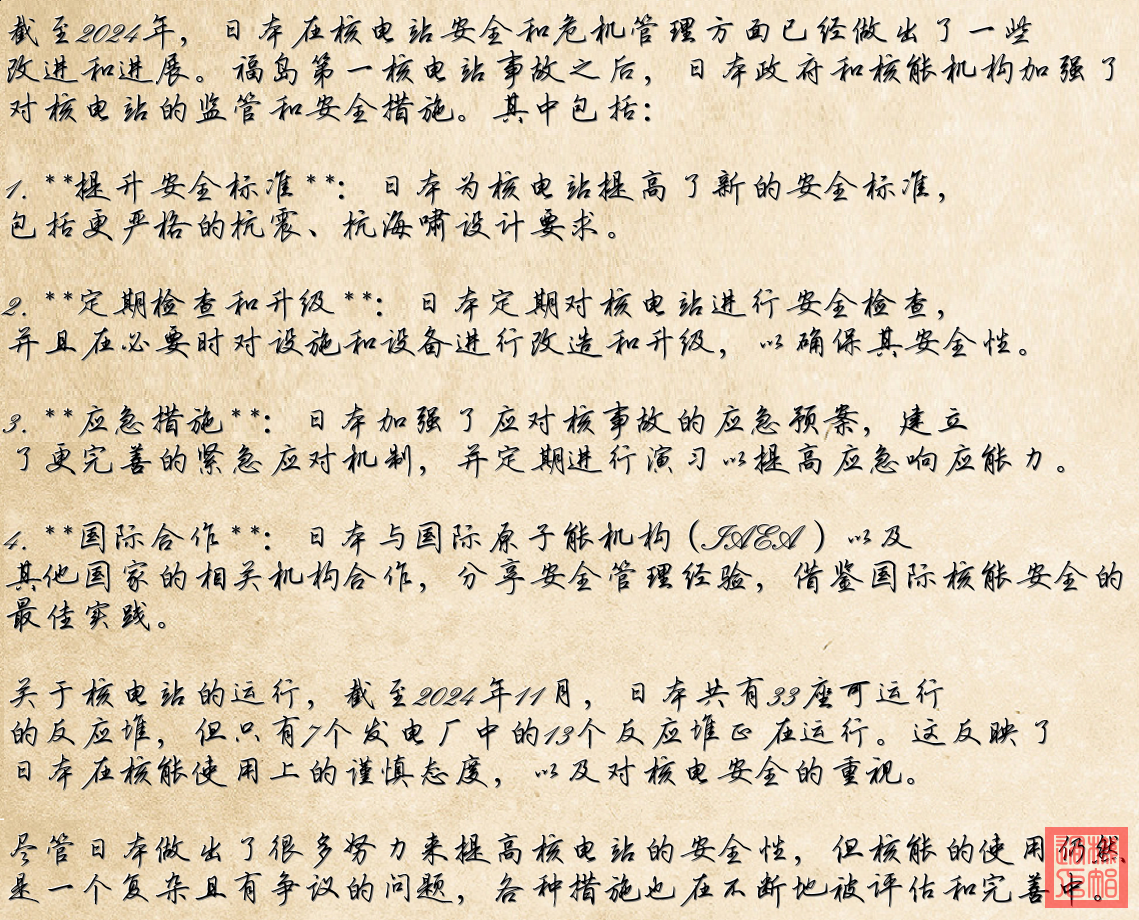 截至2024年，日本在核电站安全和危机管理方面已经做出了一些
改进和进展。福岛第一核电站事故之后，日本政府和核能机构加强了
对核电站的监管和安全措施。其中包括：
1. **提升安全标准**：日本为核电站提高了新的安全标准，
包括更严格的抗震、抗海啸设计要求。
2. **定期检查和升级**：日本定期对核电站进行安全检查，
并且在必要时对设施和设备进行改造和升级，以确保其安全性。
3. **应急措施**：日本加强了应对核事故的应急预案，建立
了更完善的紧急应对机制，并定期进行演习以提高应急响应能力。
4. **国际合作**：日本与国际原子能机构（IAEA）以及
其他国家的相关机构合作，分享安全管理经验，借鉴国际核能安全的
最佳实践。
关于核电站的运行，截至2024年11月，日本共有33座可运行
的反应堆，但只有7个发电厂中的13个反应堆正在运行。这反映了
日本在核能使用上的谨慎态度，以及对核电安全的重视。
尽管日本做出了很多努力来提高核电站的安全性，但核能的使用仍然
是一个复杂且有争议的问题，各种措施也在不断地被评估和完善中。